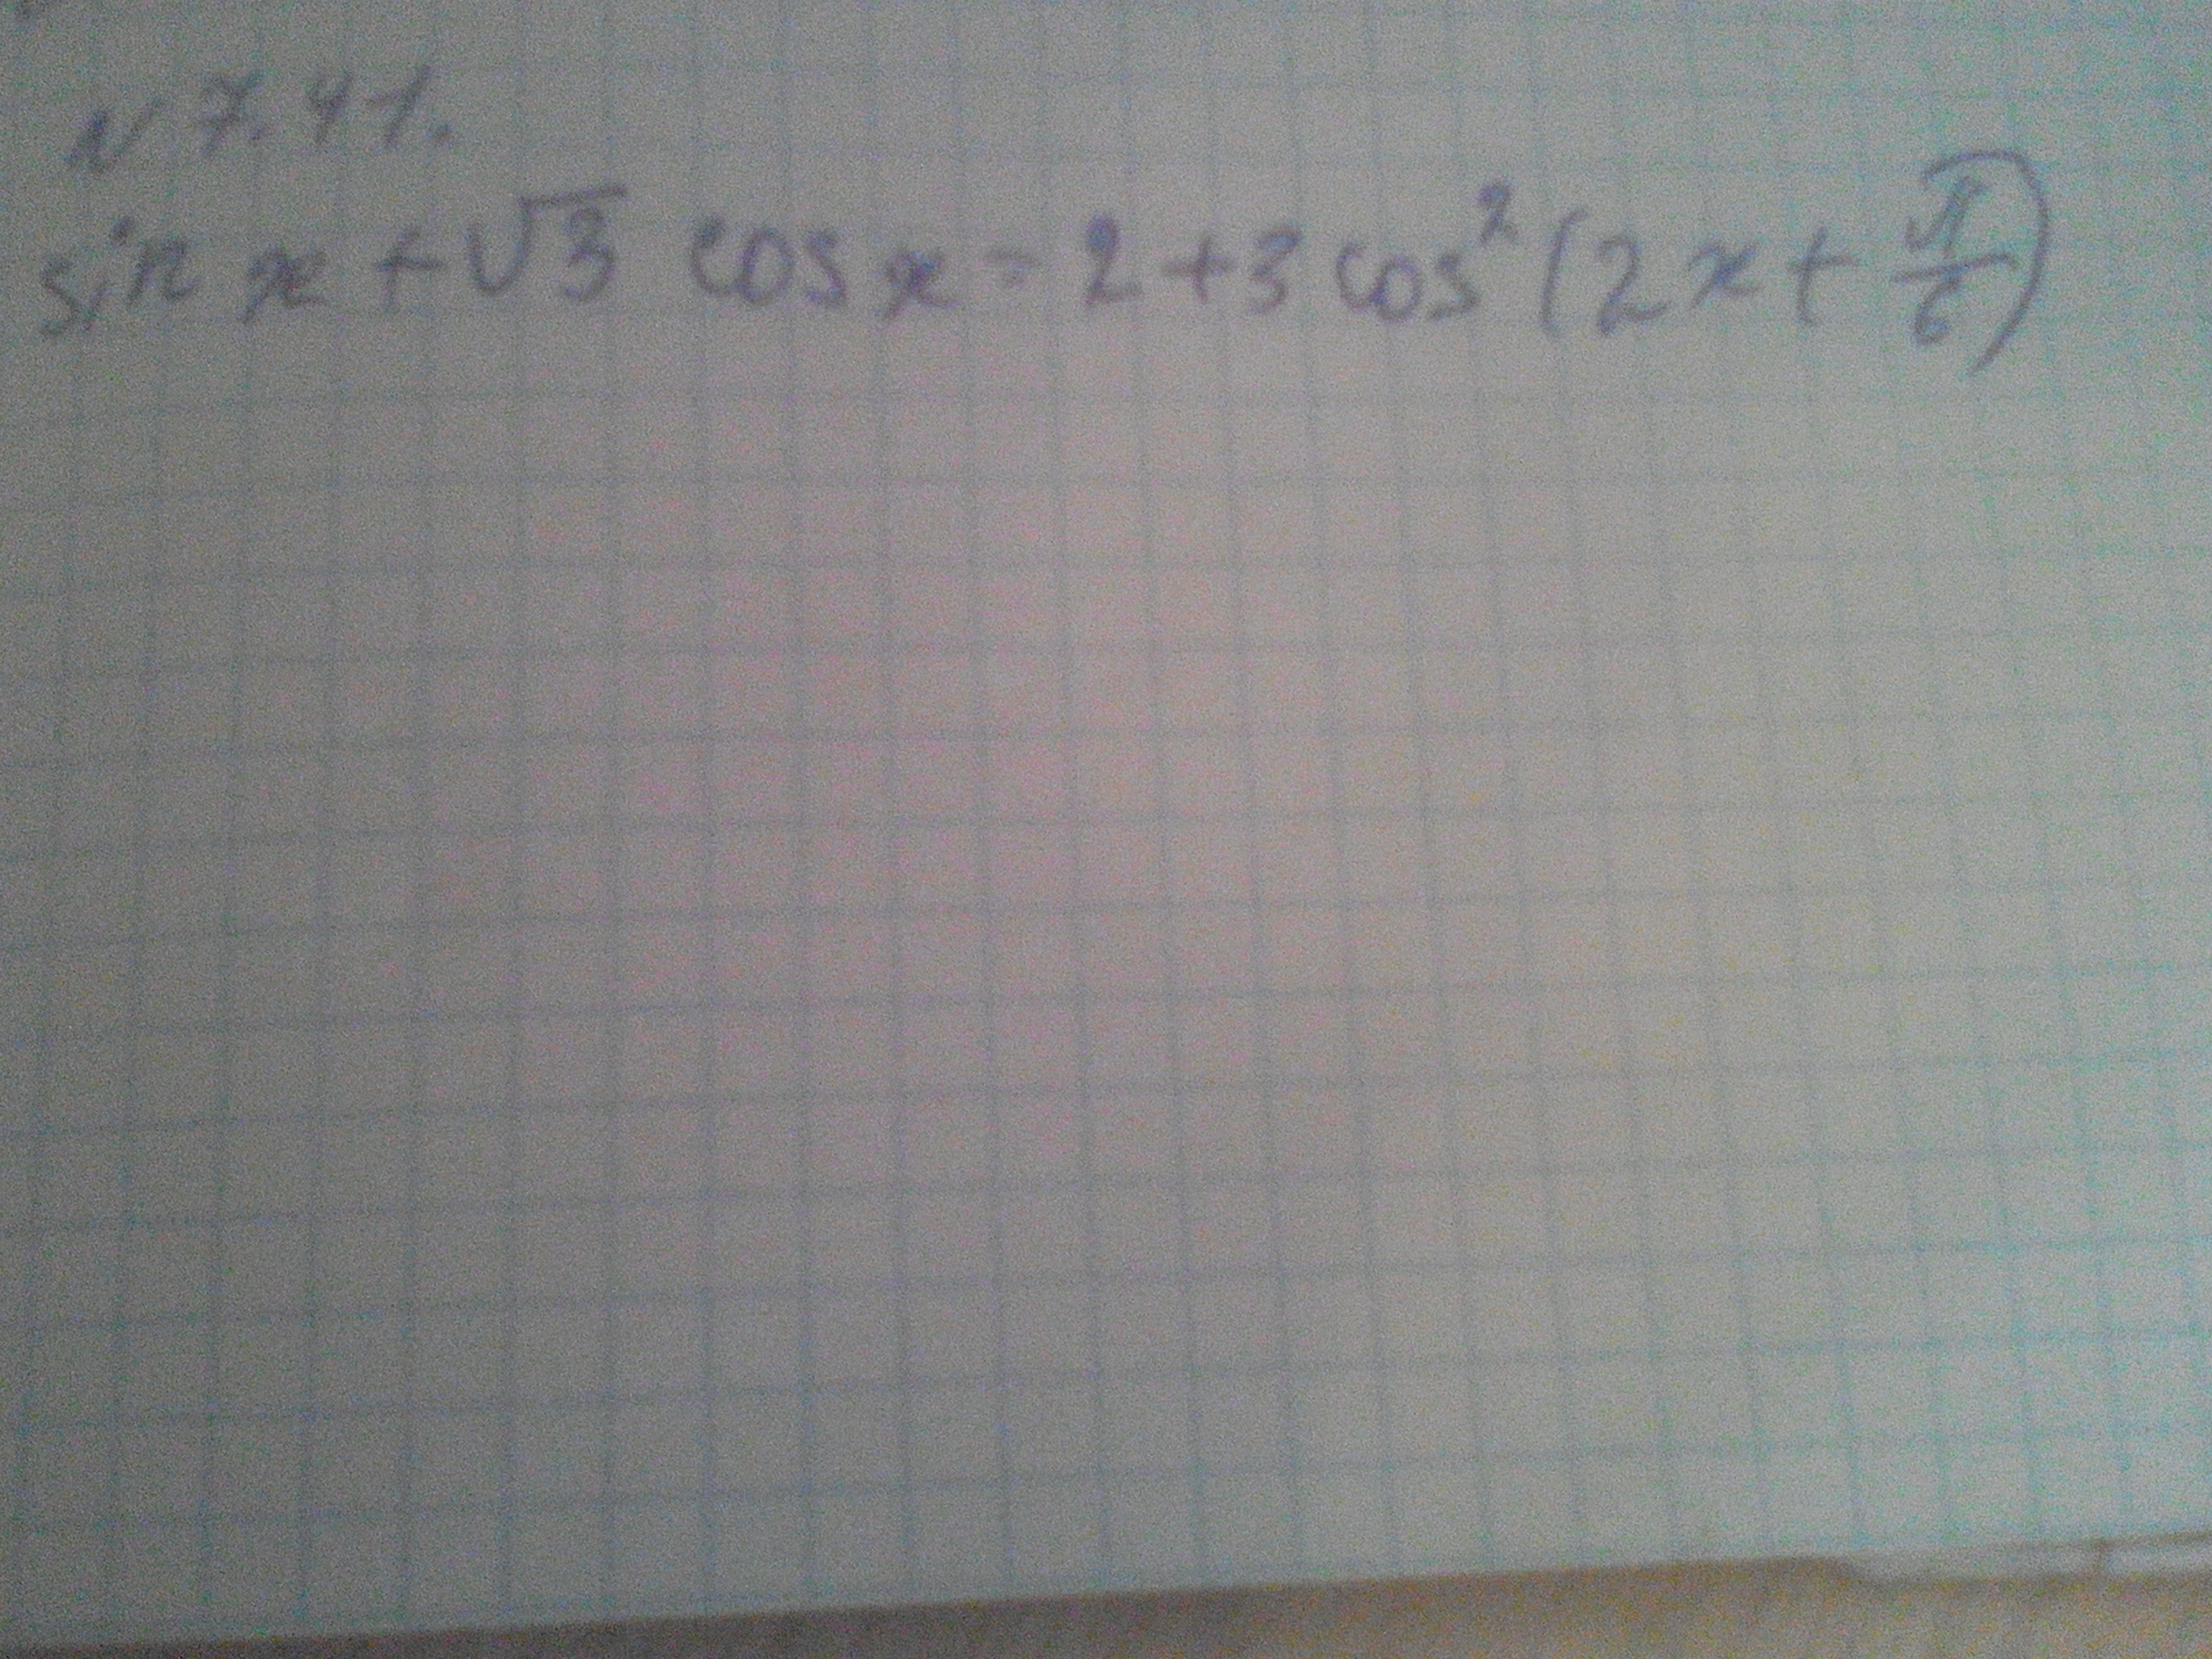 N 7.41.
sin x + √3 cos x = 2 + 3 cos² (2x + π/6)